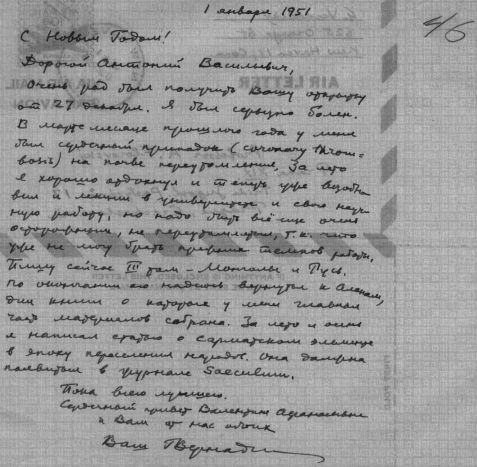 1 января 1951
4/6
С Новым Годом!
Дорогой Антоний Васильевич,
Очень рад был получить Вашу открытку
от 27 декабря. Я был серьезно болен.
В марте месяце прошлого года у меня
был сердечный припадок (coronary throm-
bosis) на почве переутомления. За лето
я хорошо отдохнул и теперь уже возобно-
вил и лекции в университете и свою науч-
ную работу, но надо быть всё еще очень
осторожным, не переутомляться, т.к.
уже не могу брать прежние темпы работы.
Пишу сейчас III том – Монголы и Русь.
По окончании его надеюсь вернуться к Аланам,
для книги о которых у меня главная
часть материалов собрана. За лето и осень
я написал статью о Сарматском элементе
в эпоху переселения народов. Она должна
появиться в журнале Saeculum.
Пока всего лучшего.
Сердечный привет Валентине Афанасьевне
и Вам от нас обоих
Ваш ГВернадский
AIR LETTER